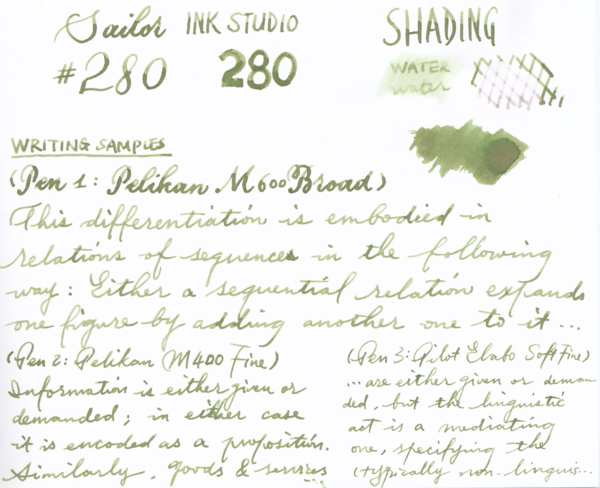 Sailor INK STUDIO SHADING
#280 280
WATER
water
WRITING SAMPLES
(Pen 1: Pelikan M600 Broad)
This differentiation is embodied in
relations of sequences in the following
way: Either a sequential relation expands
one figure by adding another one to it...
(Pen 2: Pelikan M400 Fine)
Information is either given or
demanded; in either case
it is encoded as a proposition.
Similarly, goods & services
...
(Pen 3: Pilot Elabo Soft Fine)
...are either given or deman
ded, but the linguistic
act is a mediating
one, specifying the
(typically non-linguis...